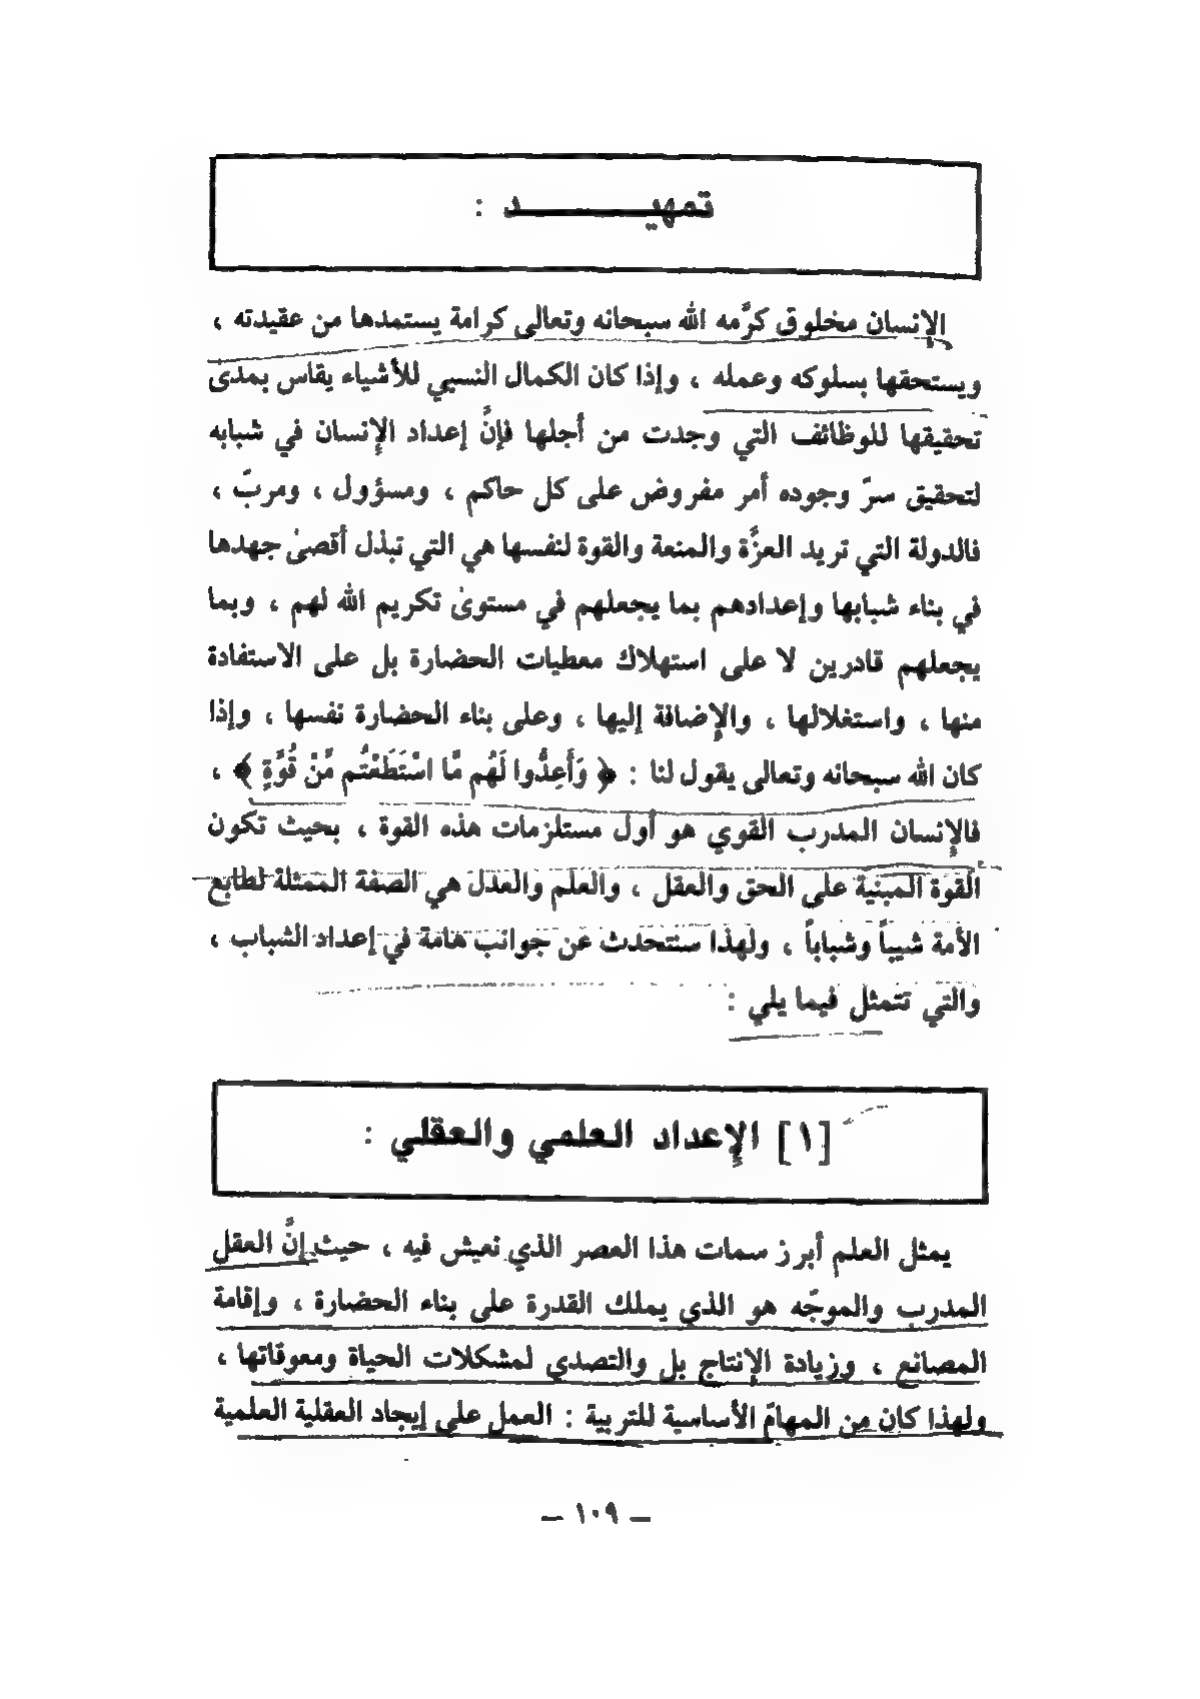 تمهيـــــــــد :
الإنسان مخلوق كرَّمه الله سبحانه وتعالى كرامة يستمدها من عقيدته ،
ويستحقها بسلوكه وعمله ، وإذا كان الكمال النسبي للأشياء يقاس بمدى
تحقيقها للوظائف التي وجدت من أجلها فإنَّ إعداد الإنسان في شبابه
لتحقيق سرّ وجوده أمر مفروض على كل حاكم ، ومسؤول ، ومربّ ،
فالدولة التي تريد العزَّة والمنعة والقوة لنفسها هي التي تبذل أقصىٰ جهدها
في بناء شبابها وإعدادهم بما يجعلهم في مستوىٰ تكريم الله لهم ، وبما
يجعلهم قادرين لا على استهلاك معطيات الحضارة بل على الاستفادة
منها ، واستغلالها ، والإضافة إليها ، وعلى بناء الحضارة نفسها ، وإذا
كان الله سبحانه وتعالى يقول لنا : ﴿ وَأَعِدُّوا لَهُم مَّا اسْتَطَعْتُم مِّنْ قُوَّةٍ ﴾ ،
فالإنسان المدرب القوي هو أول مستلزمات هذه القوة ، بحيث تكون
القوة المبنية على الحق والعقل ، والعلم والعدل هي الصفة الممثلة لطابع
الأمة شيباً وشباباً ، ولهذا سنتحدث عن جوانب هامة في إعداد الشباب ،
والتي تتمثل فيما يلي :
[١] الإعداد العلمي والعقلي :
يمثل العلم أبرز سمات هذا العصر الذي نعيش فيه ، حيث إنَّ العقل
المدرب والموجّه هو الذي يملك القدرة على بناء الحضارة ، وإقامة
المصانع ، وزيادة الإنتاج بل والتصدي لمشكلات الحياة ومعوقاتها ،
ولهذا كان من المهامّ الأساسية للتربية : العمل على إيجاد العقلية العلمية
— ١٠٩ —